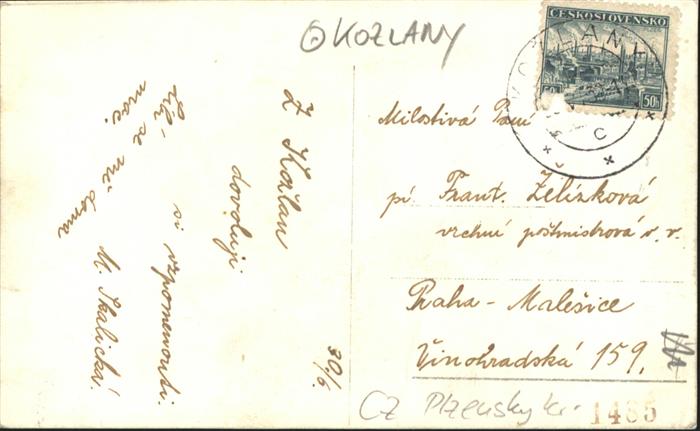 KOZLANY
ČESKOSLOVENSKO
PLZEŇ
50 50h
KOŽLANY
C
Z Kožlan
dovoluji
si vzpomenouti.
Líbí se mě doma
více,
M. Skalická.
30/6.
Milostivá Paní
pí Frant. Želízková
vrchní poštmistrová v. v.
Praha - Malešice
Vinohradská 159.
CZ Plzensky kr.
1485